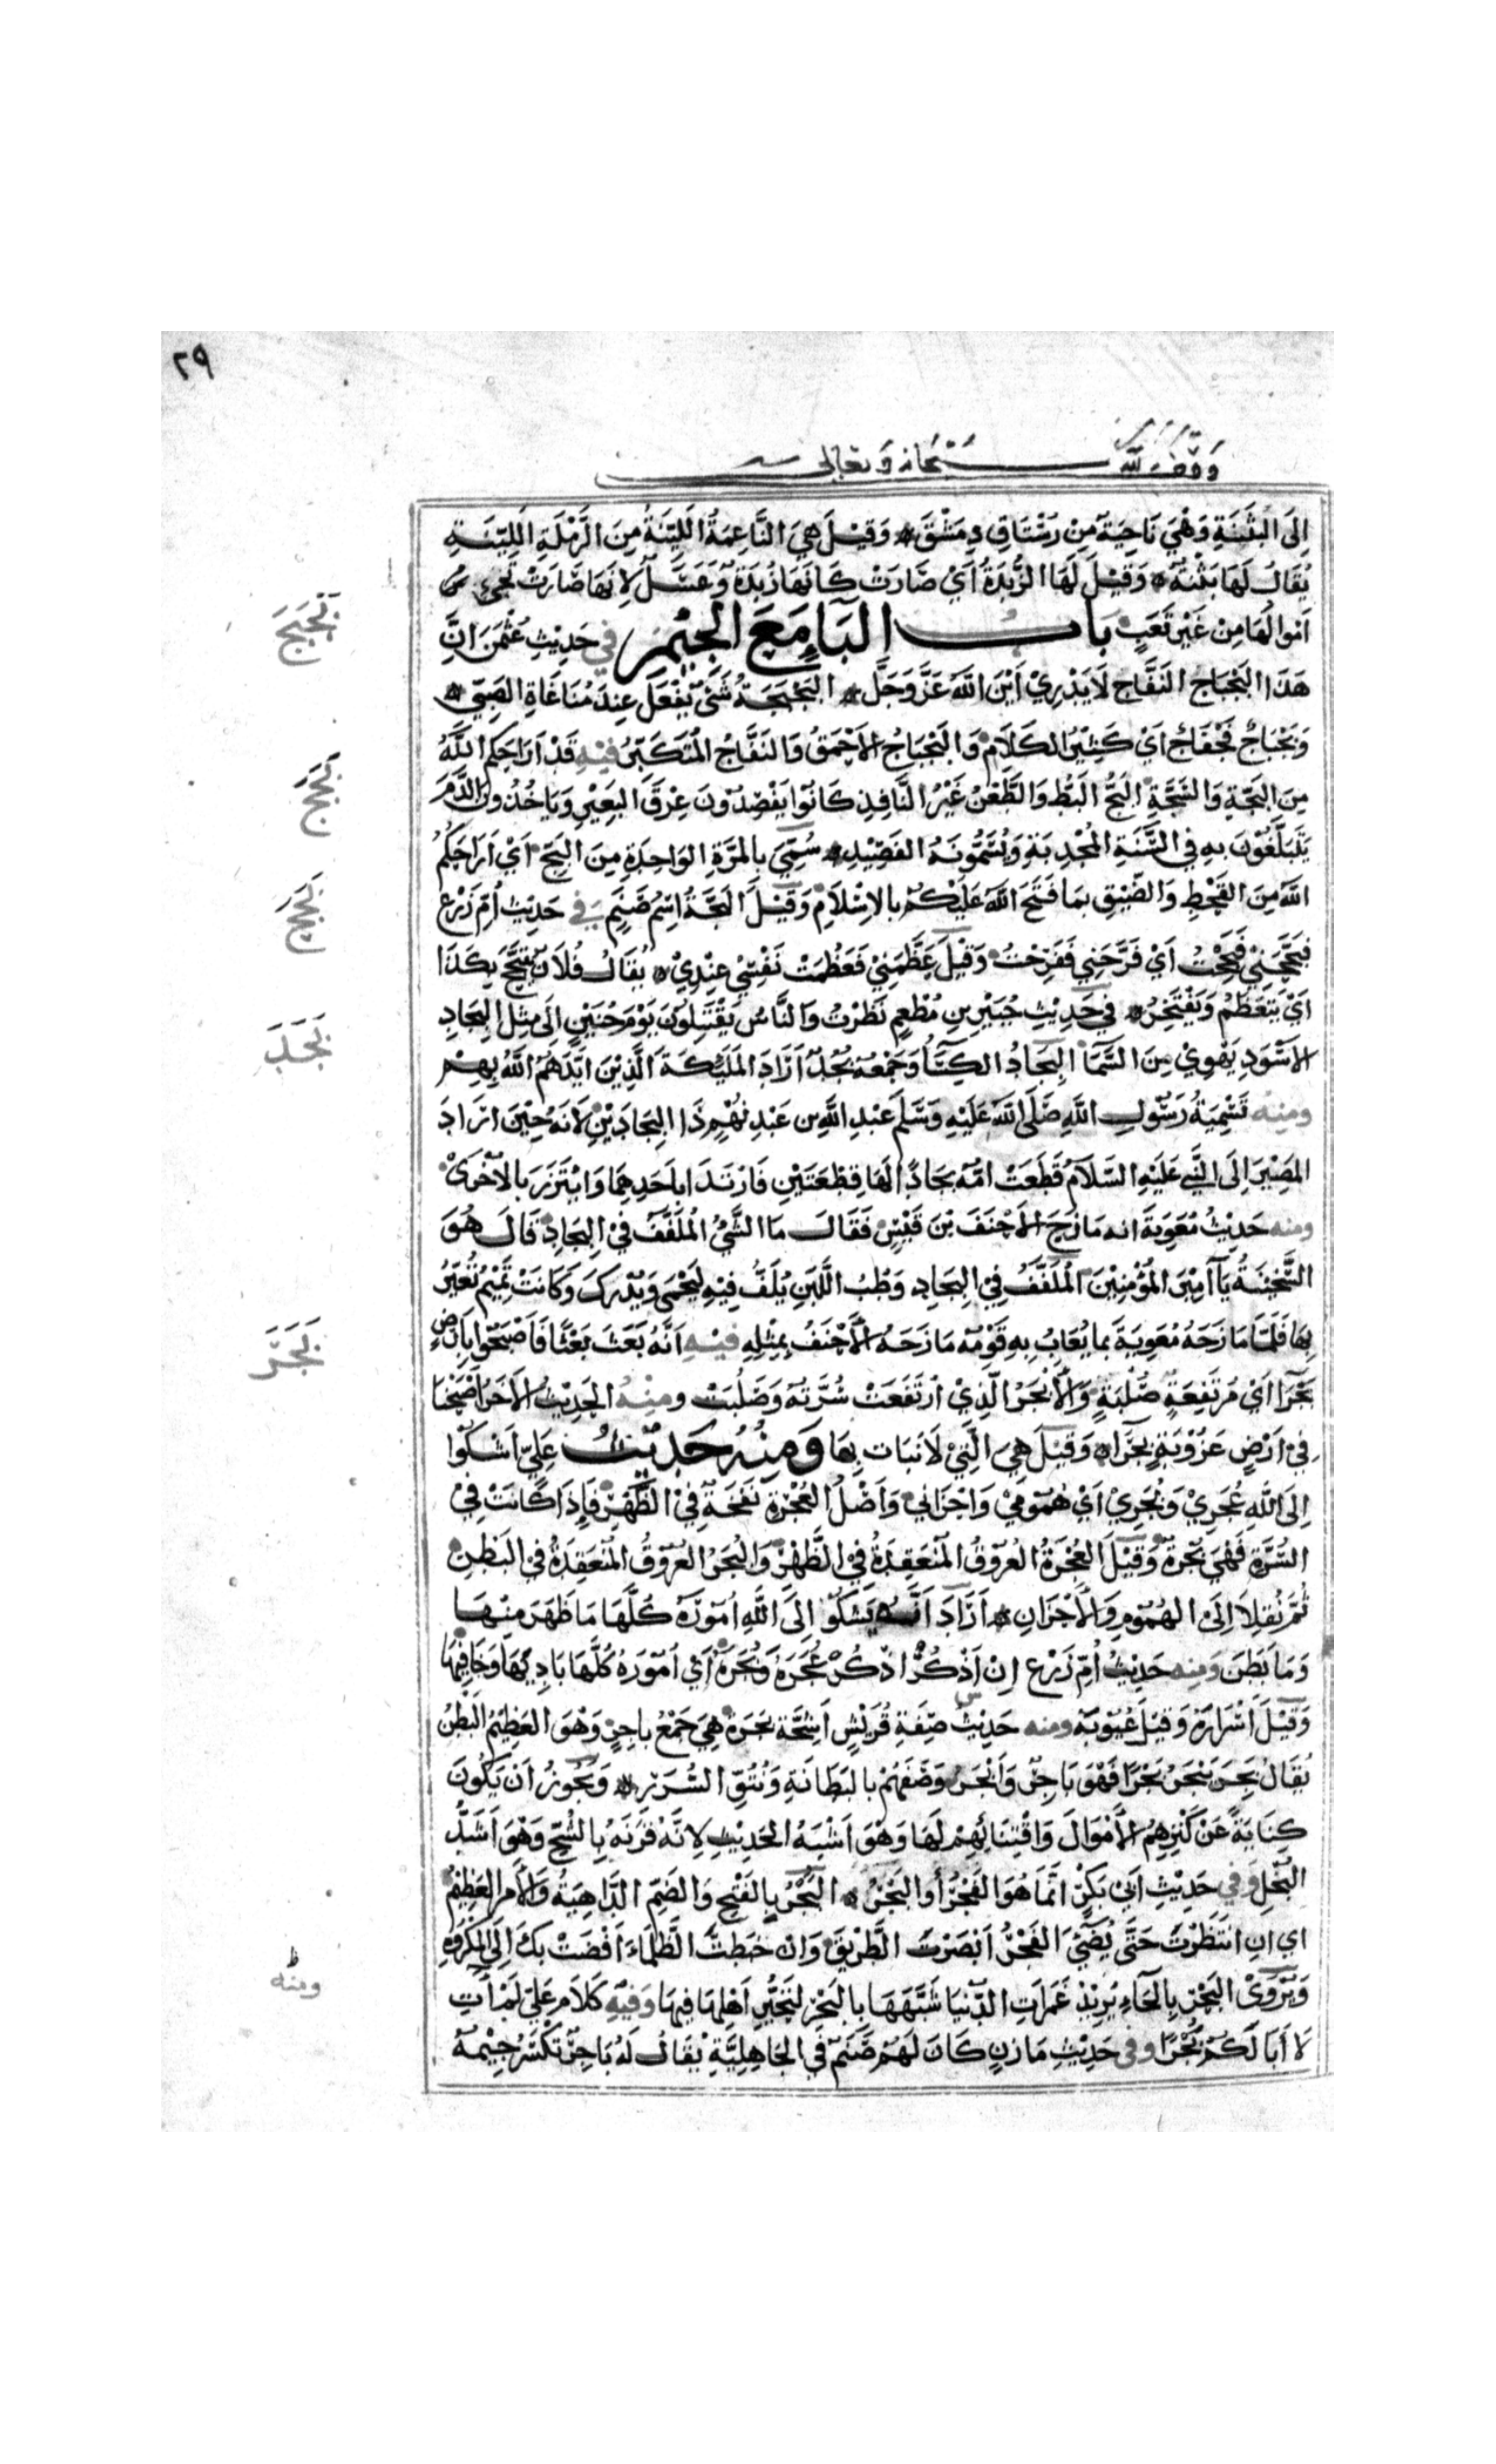 ٢٩
وقف لله سبحانه وتعالى
اِلَى البَثَنَةِ وَهْيَ نَاحِيَة مِنْ رُسْتَاقِ دِمَشْقَ وَقِيْلَ هِيَ النَّاعِمَةُ اللَّيِّنَةُ مِنَ الرَّمْلَةِ اللَّيِّنَةِ
يُقَالُ لَهَا بَثْنَةٌ وَقِيْلَ لَهَا الزُّبْدَةُ اَيْ صَارَتْ كَانَهَا زُبْدَةٌ وَعَسَلٌ لِانَهَا صَارَتْ تجيء
اَموالُهَا مِنْ غَيْرِ تَعَبٍ بَابُ البَاءِ مَعَ الجِيْمِ في حَدِيْثِ عُثْمٰنَ اِنَّ
بجبج
هَذَا البَجْبَاجَ النَفَّاجَ لَا يَدْرِيْ اَيْنَ اللّٰهُ عَزَّ وَجَلَّ البَجْبَجَةُ شَئٌ يُفْعَلُ عِنْدَ مُنَاغَاةِ الصَبِيِّ
وَبَجْبَاجٌ فَجْفَاجٌ اَيْ كَثِيْرُ الكَلَامِ وَالبَجْبَاجُ الاَحْمَقُ وَالنَفَّاجُ المُتَكَبِّرُ فِيْهِ قَدْ اَرَاحَكم اللّٰهُ
بجج
مِنَ البَجَّةِ وَالسَّجَّةِ البَجُّ البَطُّ وَالطَّعْنُ غَيْرُ النَّافِذِ كَانُوا يَفْصِدُوْنَ عِرْقَ البَعِيْرِ وَيَاخُذُونَ الدَّمَ
يَتَبَلَّغُوْنَ بِهِ فِي السَّنَةِ المُجْدِبَةِ وَيُسَمُّونَهُ الفَصِيْدَ سُمِّيَ بِالمَرَّةِ الوَاحِدَةِ مِنَ البَجِّ اَيْ اَرَاحَكُمُ
اللّٰهُ مِنَ القَحْطِ وَالضِّيْقِ بِمَا فَتَحَ اللّٰهُ عَلَيْكُمْ بِالاِسْلَامِ وَقِيْلَ البَجَّةُ اسْمُ صَنَمٍ فِي حَدِيْثِ اُمِّ زَرْعٍ
بجح
فبَجَّحَنِيْ فَبَجَحْتُ اَيْ فَرَّحَنِي فَفَرِحْتُ وَقِيْلَ عَظَّمَنِيْ فَعَظُمَتْ نَفْسِيْ عِنْدِيْ يُقَالُ فُلَانٌ يَتَبَجَّحُ بِكَذَا
اَيْ يَتَعَظَّمُ وَيَفْتَخِرُ فِي حَدِيْثِ جُبَيْرِ بنِ مُطْعِمٍ نَظَرْتُ وَالنَّاسُ يَقْتَتِلُوْنَ يَوْمَ حُنَيْنٍ اِلَى مِثْلِ البِجَادِ
بجد
الاَسْوَدِ يَهْوِيْ مِنَ السَّمَآ البِجَادُ الكِسَآ وَجَمْعُهُ بُجُدٌ اَرَادَ المَلٰئِكَةَ الَّذِيْنَ اَيَّدَهُمُ اللّٰهُ بِهِمْ
ومِنْهُ تَسْمِيَةُ رَسُوْلِ اللّٰهِ صَلَّى اللّٰهُ عَلَيْهِ وَسَلَّمَ عَبْدِ اللّٰهِ بن عَبْدِ نُهْمٍ ذَا البِجَادَيْنِ لاَنَهُ حِيْنَ اَرَادَ
المَصِيْرَ اِلَى النَّبِيِّ عَلَيْهِ السَّلَامُ قَطَعَتْ اُمُّهُ بِجَادًا لَهَا قِطْعَتَيْنِ فَارْتَدَا بِاَحَدِهِمَا وَائْتَزَرَ بِالاُخْرَىٰ
ومنه حَدِيْثُ مُعَوِيَةَ انه مَازَحَ الاَحْنَفَ بْنَ قَيْسٍ فَقَالَ مَا الشَّئُ المُلَفَّفُ فِي البِجَادِ قَالَ هُوَ
السَّخِيْنَةُ يَآ اَمِيْرَ المُؤْمِنِيْنَ المُلَفَّفُ فِي البِجَادِ وَطْبُ اللَّبَنِ يُلَفُّ فِيْهِ لِيَحْمَى وَيُدْرِكَ وَكَانَتْ تَمِيْمُ تُعَيَّرُ
بِهَا فَلَمَّا مَازَحَهُ مُعَوِيَةُ بما يُعَابُ بِهِ قَوْمُهُ مَازَحَهُ الاَحْنَفُ بِمِثْلِهِ فِيْهِ اَنَّهُ بَعَثَ بَعْثًا فَاَصْبَحُوا بِاَرْضٍ
بجر
بَجْرَا اَيْ مُرْتَفِعَةٍ صُلْبَةٍ وَالاَبْجَرُ الَّذِيْ ارْتَفَعَتْ سُرَّتُهُ وَصَلُبَتْ ومِنْهُ الحَدِيْثُ الاَخَرُ اَصْبَحْنَا
فِيْ اَرْضٍ عَزُوْبَةٍ بَجْرَآءَ وَقِيْلَ هِيَ الَّتِيْ لَا نَبَاتَ بِهَا وَمِنْهُ حَدِيْثُ عَلِيٍّ اَشْكُوا
اِلَى اللّٰهِ عُجَرِيْ وَبُجَرِيْ اَيْ هُمُوْمِيْ وَاحْزَانِيْ وَاَصْلُ العُجْرَةِ نَفْخَةٌ فِيْ الظَّهْرِ فَاِذَا كَانَتْ فِيْ
السُّرَّةِ فَهْيَ بُجْرَةٌ وَقِيْلَ العُجَرُ العُرُوْقُ المُنْعَقِدَةُ فِيْ الظَّهْرِ وَالبُجَرُ العُرُوْقُ المُنْعَقِدَةُ فِيْ البَطْنِ
ثُمَّ نُقِلَا اِلَى الهُمُوْمِ وَالاَحْزَانِ اَرَادَ اَنَّهُ يَشْكُوْ اِلَى اللّٰهِ اُمُوْرَهُ كُلَّهَا مَا ظَهَرَ مِنْهَا
وَمَا بَطَنَ وَمِنه حَدِيْثُ اُمِّ زَرْعٍ اِنْ اَذْكُرْهُ اَذْكُرْ عُجَرَهُ وَبُجَرَهُ اَيْ اُمُوْرَهُ كُلَّهَا بَادِيَهَا وَخَافِيَهَا
وَقِيْلَ اَسْرَارَهُ وَقِيْلَ عُيُوْبَهُ ومنه حَدِيْثُ صِفَةِ قُرَيْشٍ اَشِحَّةٌ بَجَرَةٌ هِيَ جَمْعُ بَاجِرٍ وَهْوَ العَظِيْمُ البَطْنِ
يُقَالُ بَجِرَ يَبْجَرُ بَجَرًا فَهْوَ بَاجِرٌ وَاَبْجَرُ وَصَفَهُمْ بِالبَطَانَةِ وَنُتُوِّ السُّرَرِ وَيَجُوْزُ اَنْ يَكُوْنَ
كِنَايَةً عَنْ كَنْزِهِمُ الاَمْوَالَ وَاقْتِنَائِهِمْ لَهَا وَهْوَ اَشْبَهُ الحَدِيْثِ لِانَّهُ قَرَنَهُ بِالشُّحِّ وَهْوَ اَشَدُّ
البُخْلِ وَفِي حَدِيْثِ اَبِيْ بَكْرٍ اِنَّمَا هُوَ الفَجْرُ اَوِ البَجْرُ البَجْرُ بِالفَتْحِ وَالضَّمِّ الدَّاهِيَةُ وَالاَمرُ العَظِيْمُ
اي اِنِ انْتَظَرْتَ حَتَّى يُضِيْئَ الفَجْرُ اَبْصَرْتَ الطَّرِيْقَ وَاِنْ خَبَطْتَ الظَّلْمَاءَ اَفْضَتْ بِكَ اِلَى المَكْرُوْهِ
وَيُرْوَىْ البَحْرُ بِالحَاءِ يُرِيْدُ غَمَرَاتِ الدُّنْيَا شَبَّهَهَا بِالبَحْرِ لِتَحَيُّرِ اَهْلِهَا فِيهَا وَفِيْهِ كَلَام عَلِيٍّ لَمْ اٰتِ
ومنه
لَا اَبَا لَكُمْ بُجْرًا وفي حَدِيْثِ مَازِنٍ كَانَ لَهُمْ صَنَمٌ فِي الجَاهِلِيَّةِ يُقَالُ لَهُ بَاجِرٌ تُكْسَرُ جِيْمُهُ